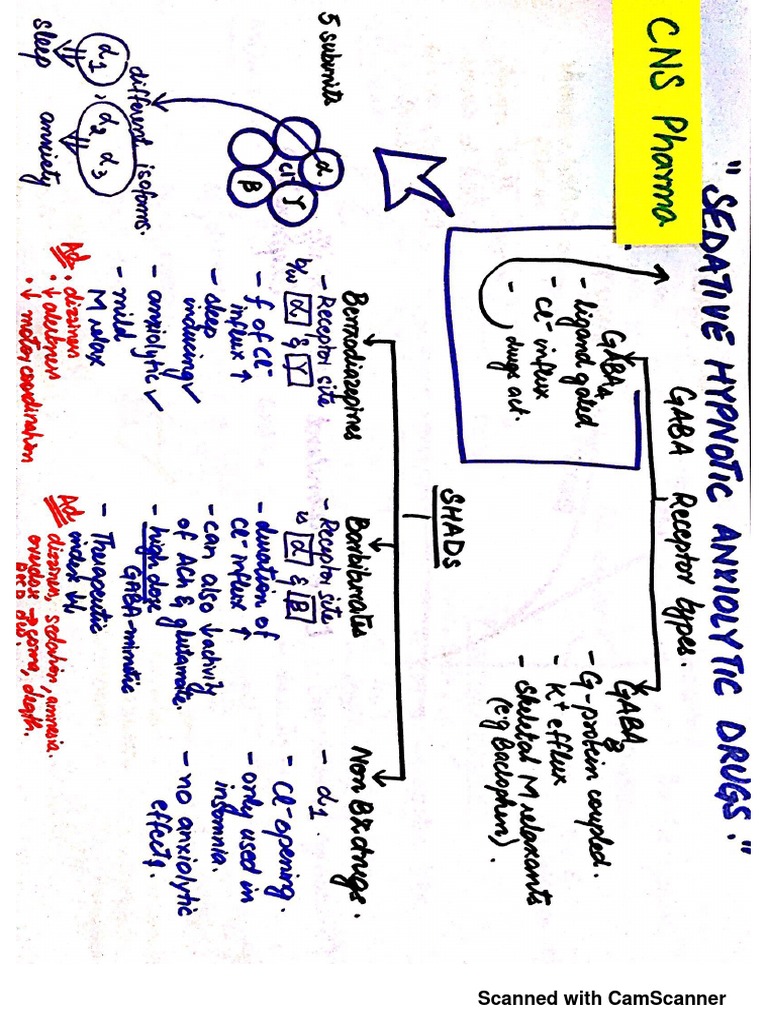 CNS Pharma
"SEDATIVE HYPNOTIC ANXIOLYTIC DRUGS."
GABA Receptor types.
GABA A
- ligand gated
- Cl⁻ influx
- drugs act.
GABA B
- G-protein coupled.
- K⁺ efflux
- Skeletal M relaxants
(e.g Baclophen).
5 subunits
α
Cl⁻
γ
β
different isoforms.
α1, α2 α3
sleep
anxiety
SHADS
Benzodiazepines
- Receptor site
b/w α & γ
- f of Cl⁻
influx ↑
- sleep
inducing ✓
- anxiolytic ✓
- mild
M relax
Ad: dizziness
• ↓ alertness
• ↓ motor coordination
Barbiturates
- Receptor site
is α & β
- duration of
Cl⁻ influx ↑
- can also ↓ activity
of ACh & glutamate.
- high dose
GABA-mimetic
- Therapeutic
index ↓↓
Ad: dizziness, sedation, amnesia.
overdose → coma, death.
Non BX drugs.
- α1.
- Cl⁻ opening.
- only used in
insomnia.
- no anxiolytic
effects.
Scanned with CamScanner